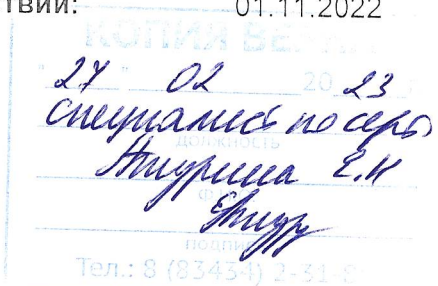 твии: 01.11.2022
КОПИЯ ВЕРНА
27 02 20 23
специалист по серт
должность
Е.Н
подпись
Тел.: 8 (83434) 2-31-8